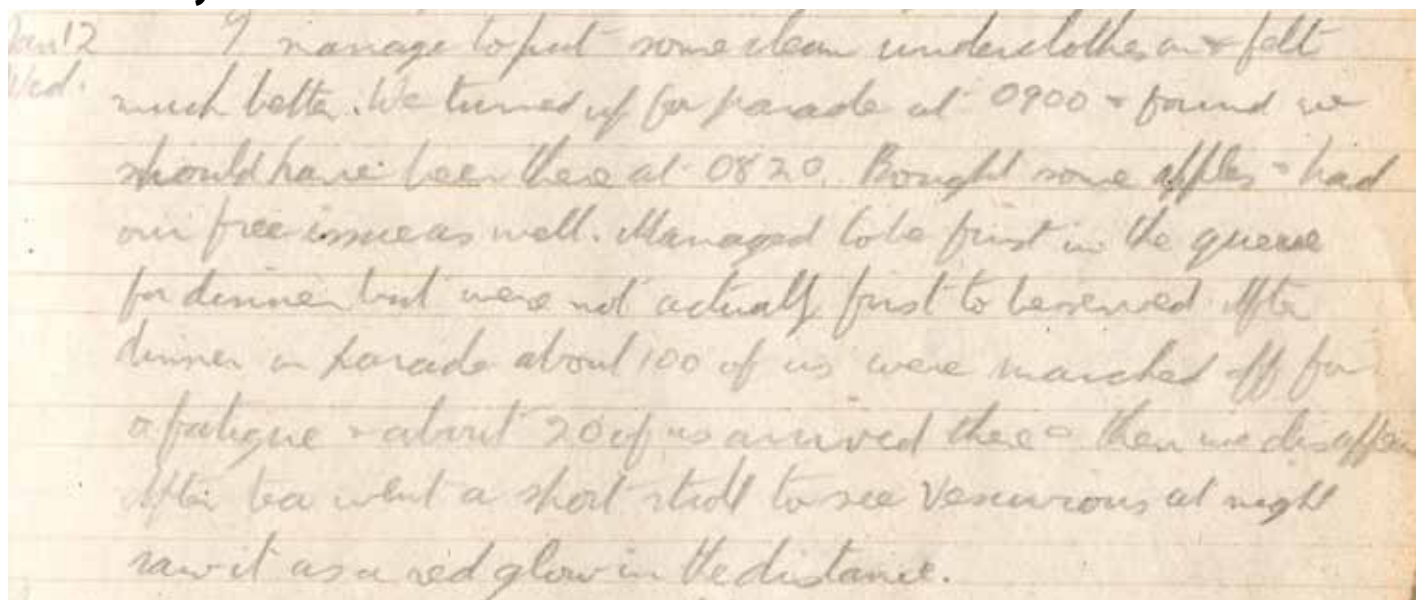 Jan 12 I manage to put some clean underclothes on & felt
Wed. much better. We turned up for parade at 0900 & found we
should have been there at 0820. Bought some apples & had
our free issue as well. Managed to be first in the queue
for dinner but were not actually first to be served. After
dinner on parade about 100 of us were marched off for
a fatigue & about 20 of us arrived there & then we disappear
After tea went a short stroll to see Vesuvious at night
saw it as a red glow in the distance.